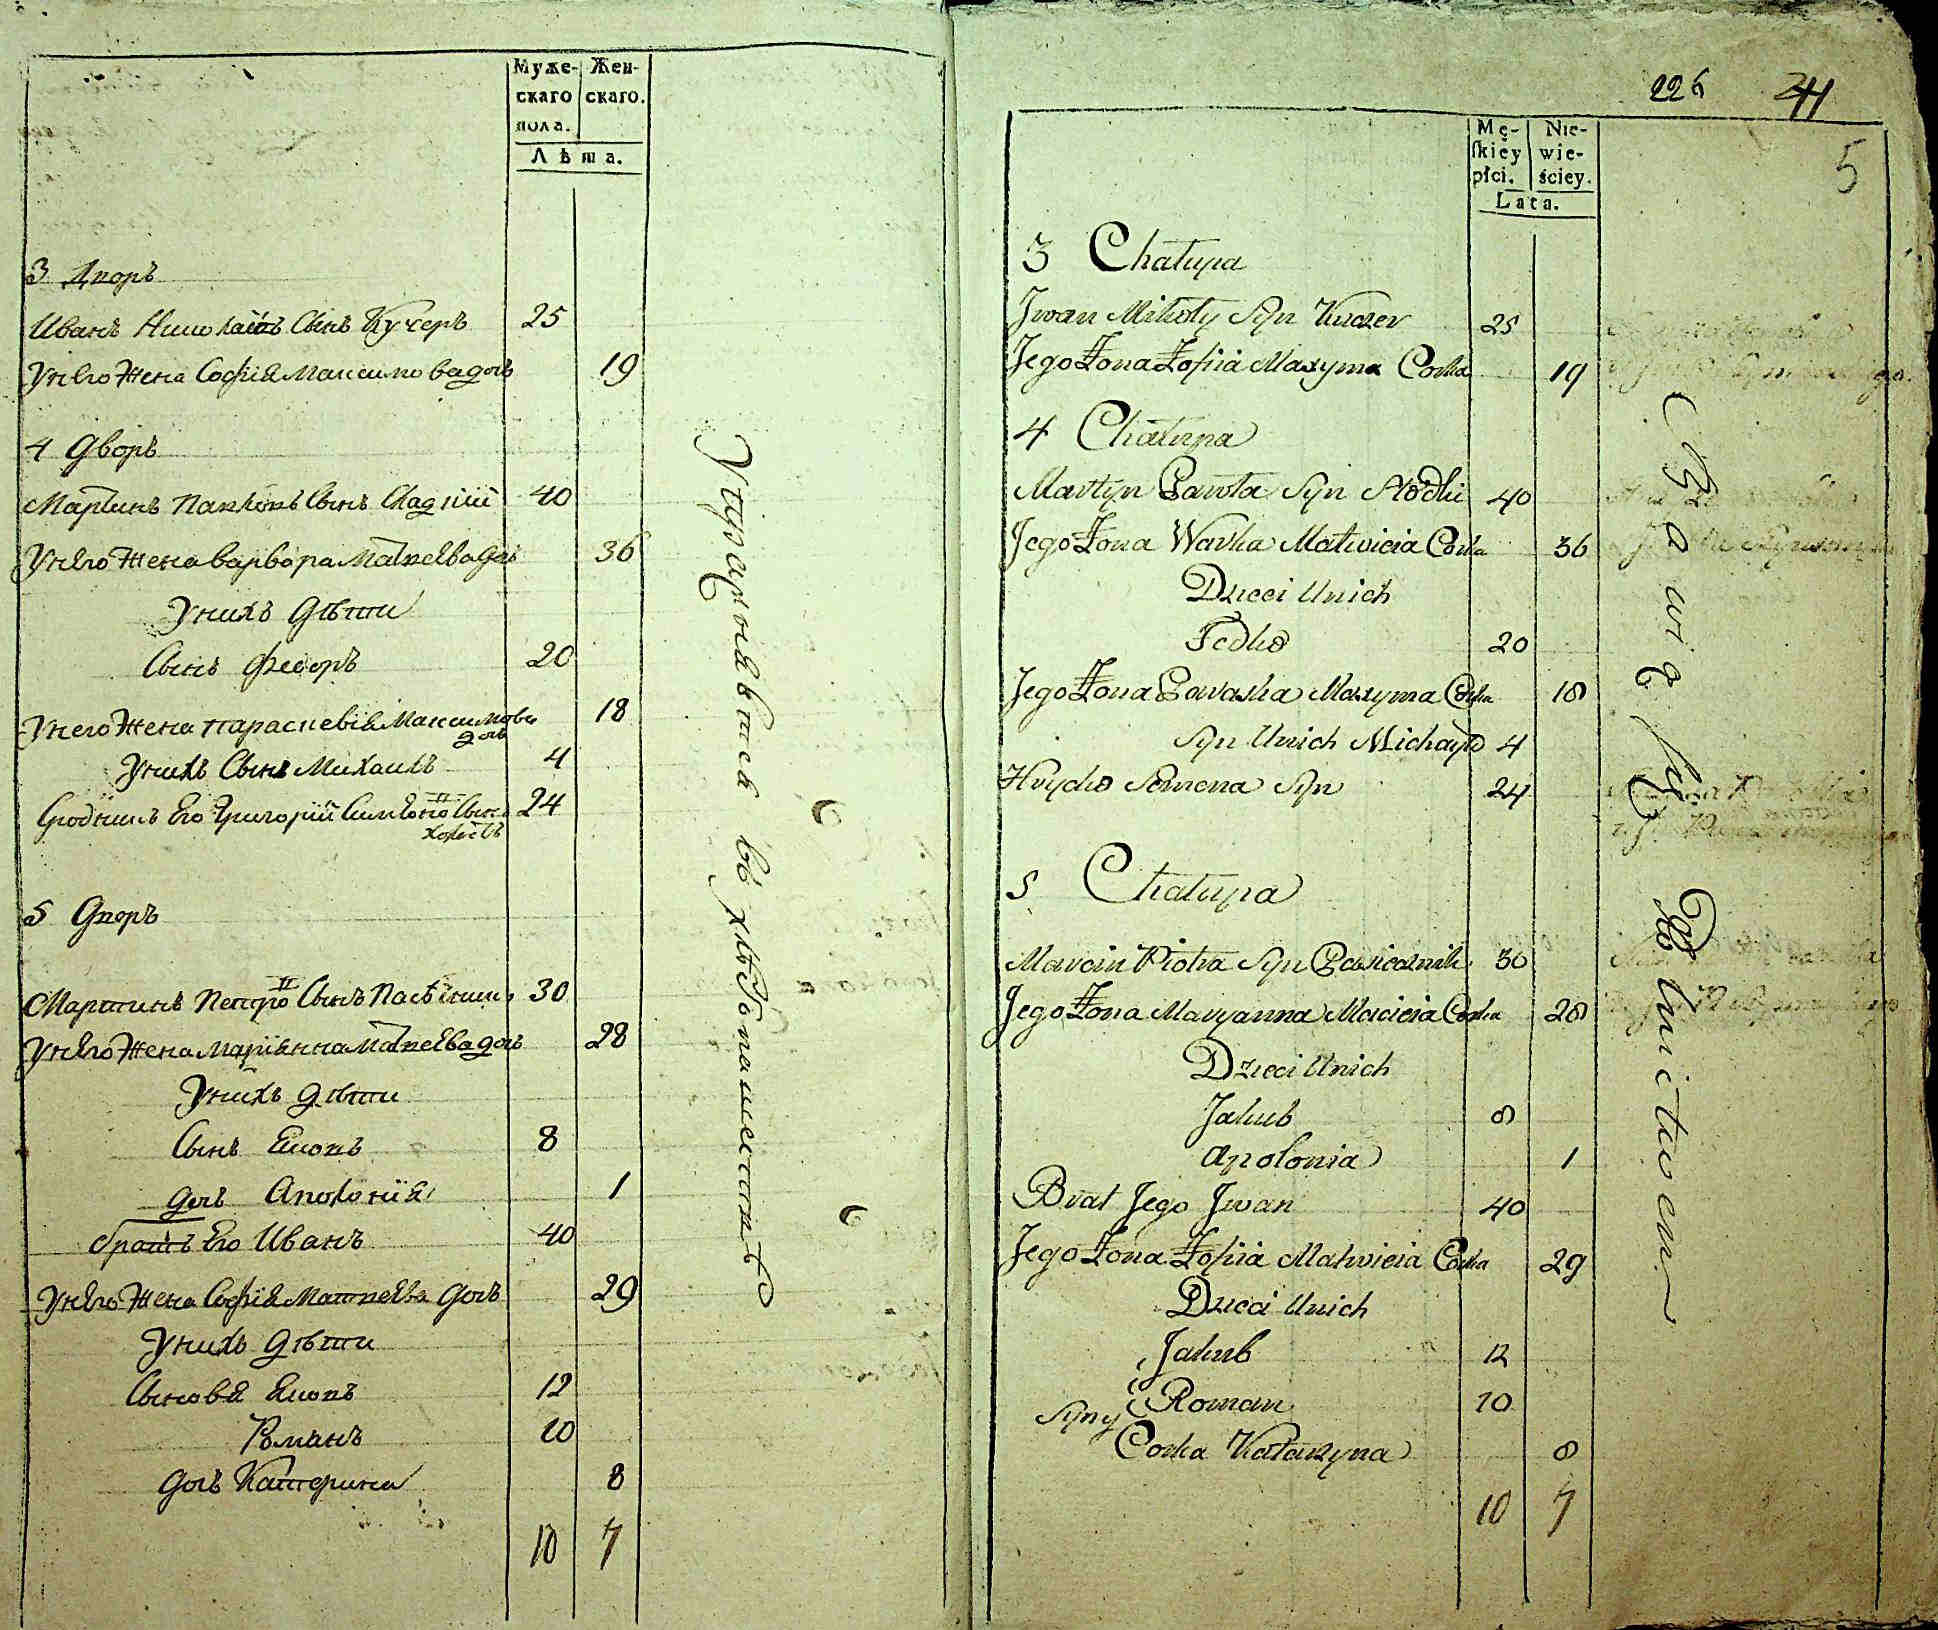 Муже- Жен-
скаго скаго.
пола.
Лѣта.
3 Дворъ
Иванъ Николаiовъ Сынъ Кучеръ 25
Унего Жена Софiя Максимова дочь 19
4 Дворъ
Мартинъ Павловъ Сынъ Сладкiй 40
Унего Жена варвара Матвеева дочь 36
Унихъ дѣти
Сынъ Федоръ 20
Унего Жена параскевiя Максимова дочь 18
Унихъ Сынъ Михаилъ 4
Сродникъ Его Григорiй Симеоно Сынъ 24
5 Дворъ
Мартинъ Петро Сынъ Пасѣчникъ 30
Унего Жена Марiянна Матвеева дочь 28
Унихъ дѣти
Сынъ Яковъ 8
дочь Аполонiя 1
братъ Его Иванъ 40
Унего Жена Софiя Матвеева дочь 29
Унихъ дѣти
Сыновя Яковъ 12
Романъ 10
дочь Катерина 8
10 7
Упражняется въ хлѣбопашествѣ
226 241
5
Mę- Nie-
ſkiey wie-
płci. ściey.
Lata.
3 Chałupa
Jwan Mikoły Syn Kuczer 25
Jego Żona Zofia Maxyma Corka 19
4 Chałupa
Martyn Pawła Syn Słodki 40
Jego Żona Warka Matwieia Corka 36
Dzieci Unich
Fedko 20
Jego Żona Paraska Maxyma Corka 18
Syn Unich Michayło 4
Hryćko Semena Syn 24
5 Chałupa
Marcin Piotra Syn Pasiecznik 30
Jego Żona Maryanna Macieia Corka 28
Dzieci Unich
Jakub 8
Apolonia 1
Brat Jego Jwan 40
Jego Żona Zofia Matwieia Corka 29
Dzieci Unich
Jakub 12
Syny Roman 10
Corka Katarzyna 8
10 7
Bawią się Rolnictwem